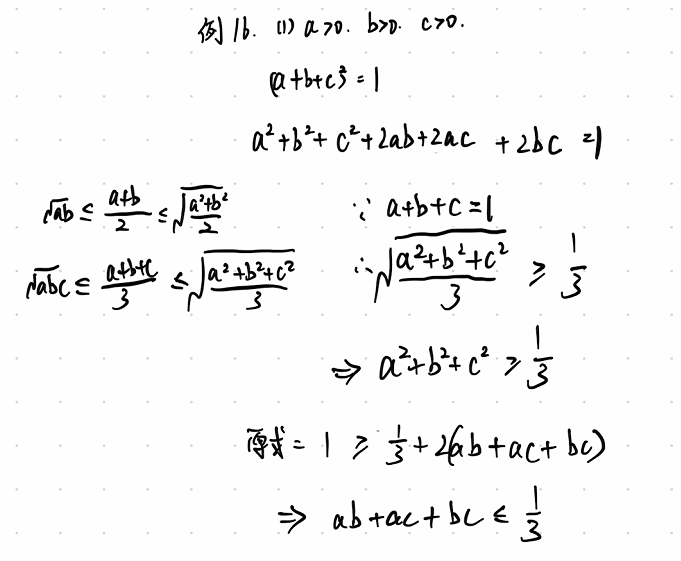 例16. (1) a>0. b>0. c>0.
(a+b+c)² = 1
a²+b²+c²+2ab+2ac +2bc =1
√ab ≤ (a+b)/2 ≤ √((a²+b²)/2)
∵ a+b+c=1
√abc ≤ (a+b+c)/3 ≤ √((a²+b²+c²)/3)
∴ √((a²+b²+c²)/3) ≥ 1/3
⇒ a²+b²+c² ≥ 1/3
原式 = 1 ≥ 1/3+2(ab+ac+bc)
⇒ ab+ac+bc ≤ 1/3